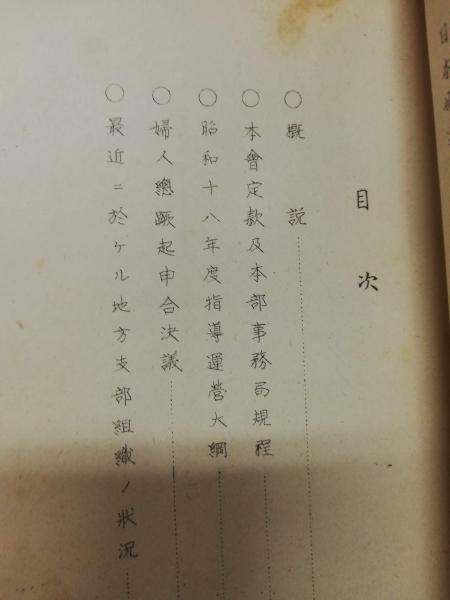 目次
○概説
○本會定款及本部事務局規程
○昭和十八年度指導運營大綱
○婦人總蹶起申合決議
○最近ニ於ケル地方支部組織ノ狀況